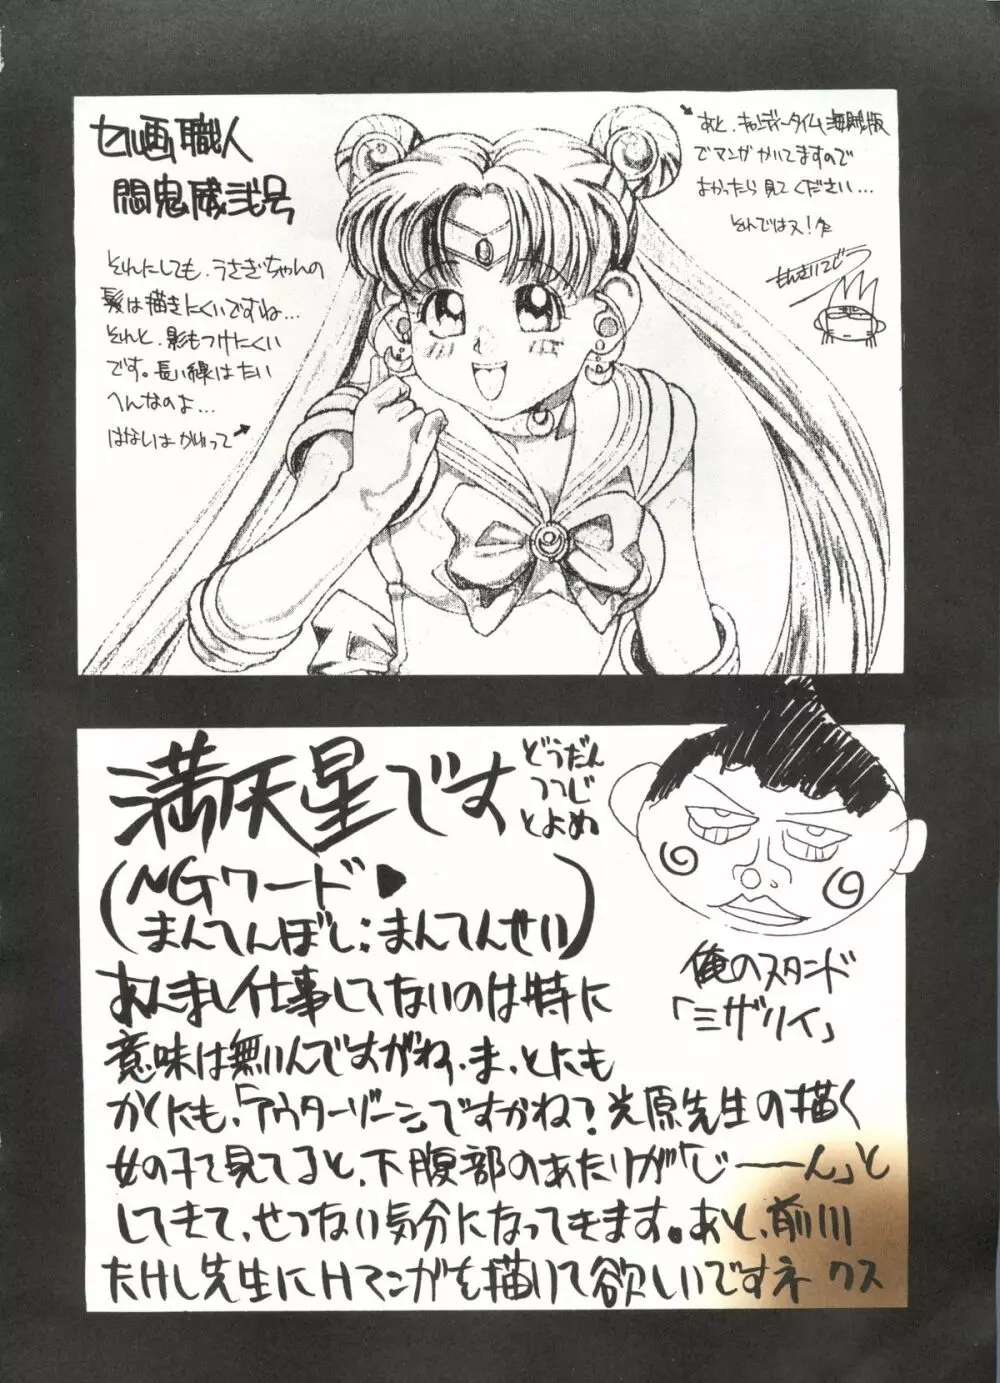 セル画職人
悶鬼威弐号
それにしても、うさぎちゃんの
髪は描きにくいですね…
それと、影もつけにくい
です。長い線はたい
へんなのよ…
はなしは かわって
あと、キャンディータイム海賊版
でマンガかいてますので
よかったら見てください…
そんではス!
もんきいにごう
満天星です
どうだん
つつじ
とよめ
(NGワード♥
まんてんぼし:まんてんせい)
あんまし仕事してないのは特に
意味は無いんですがね、ま、とにも
かくにも、「アウターゾーン」ですかね?光原先生の描く
女の子て見てると、下腹部のあたりが「じーーん」と
してきて、せつない気分になってきます。あと、前川
たけし先生にHマンガを描いて欲しいですネ クス
俺のスタンド
「ミザリィ」